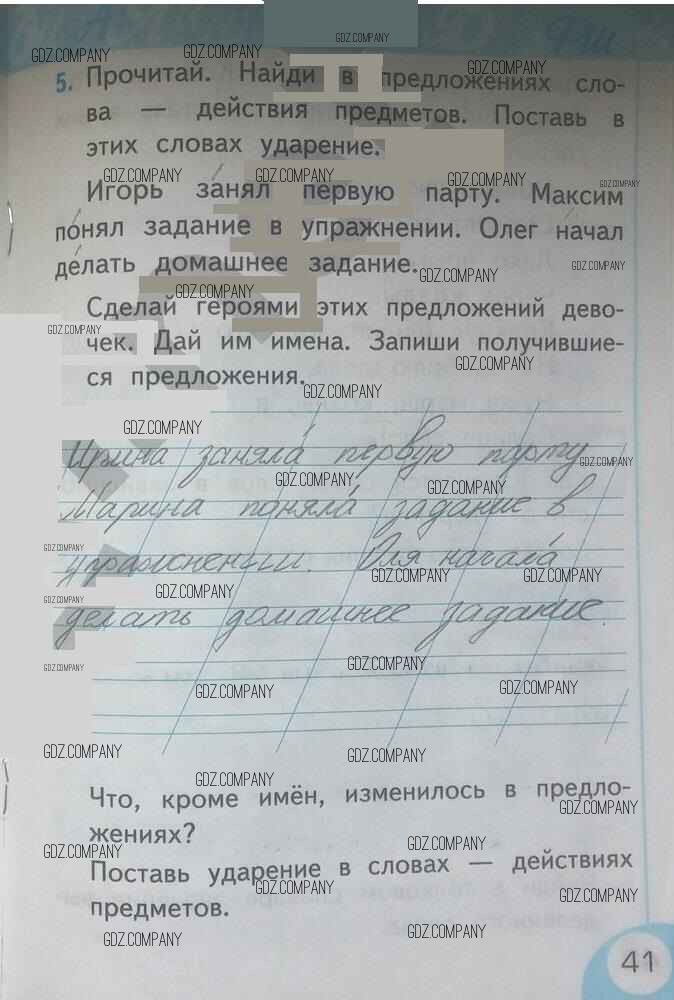 5. Прочитай. Найди в предложениях сло-
ва — действия предметов. Поставь в
этих словах ударение.
Игорь за́нял первую парту. Максим
по́нял задание в упражнении. Олег на́чал
де́лать домашнее задание.
Сделай героями этих предложений дево-
чек. Дай им имена. Запиши получившие-
ся предложения.
Ирина заняла́ первую парту
Марина поняла́ задание в
упражнении. Оля начала́
делать домашнее задание.
Что, кроме имён, изменилось в предло-
жениях?
Поставь ударение в словах — действиях
предметов.
41
GDZ.COMPANY